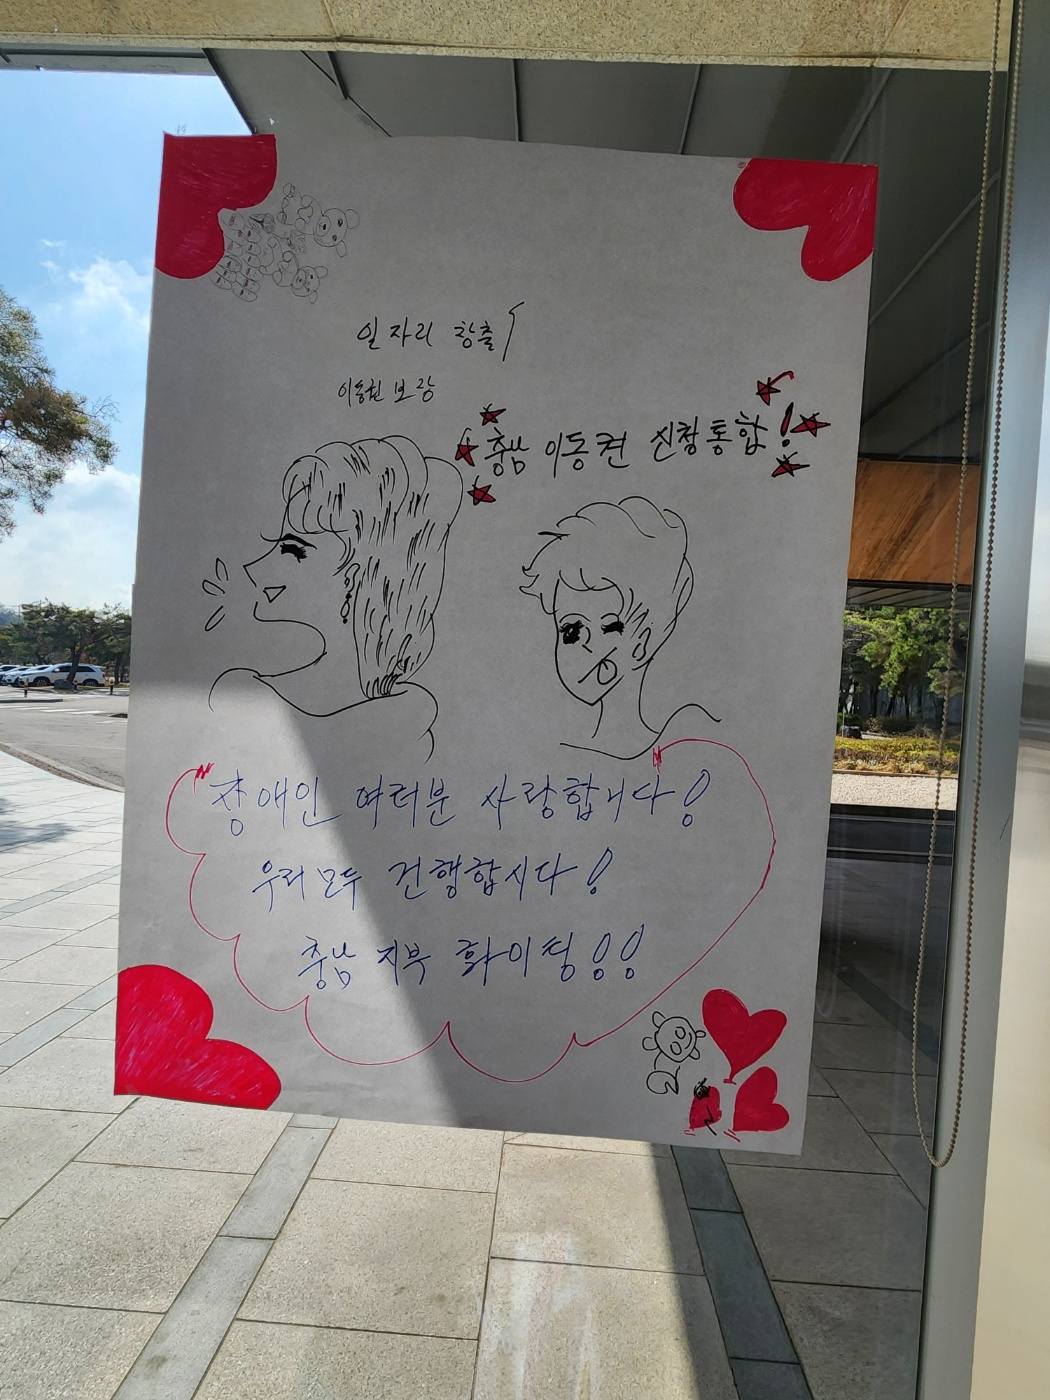 일자리 창출
이동권 보장
충남 이동권 진창통합!
장애인 여러분 사랑합니다!
우리 모두 건행합시다!
충남 지부 화이팅!!